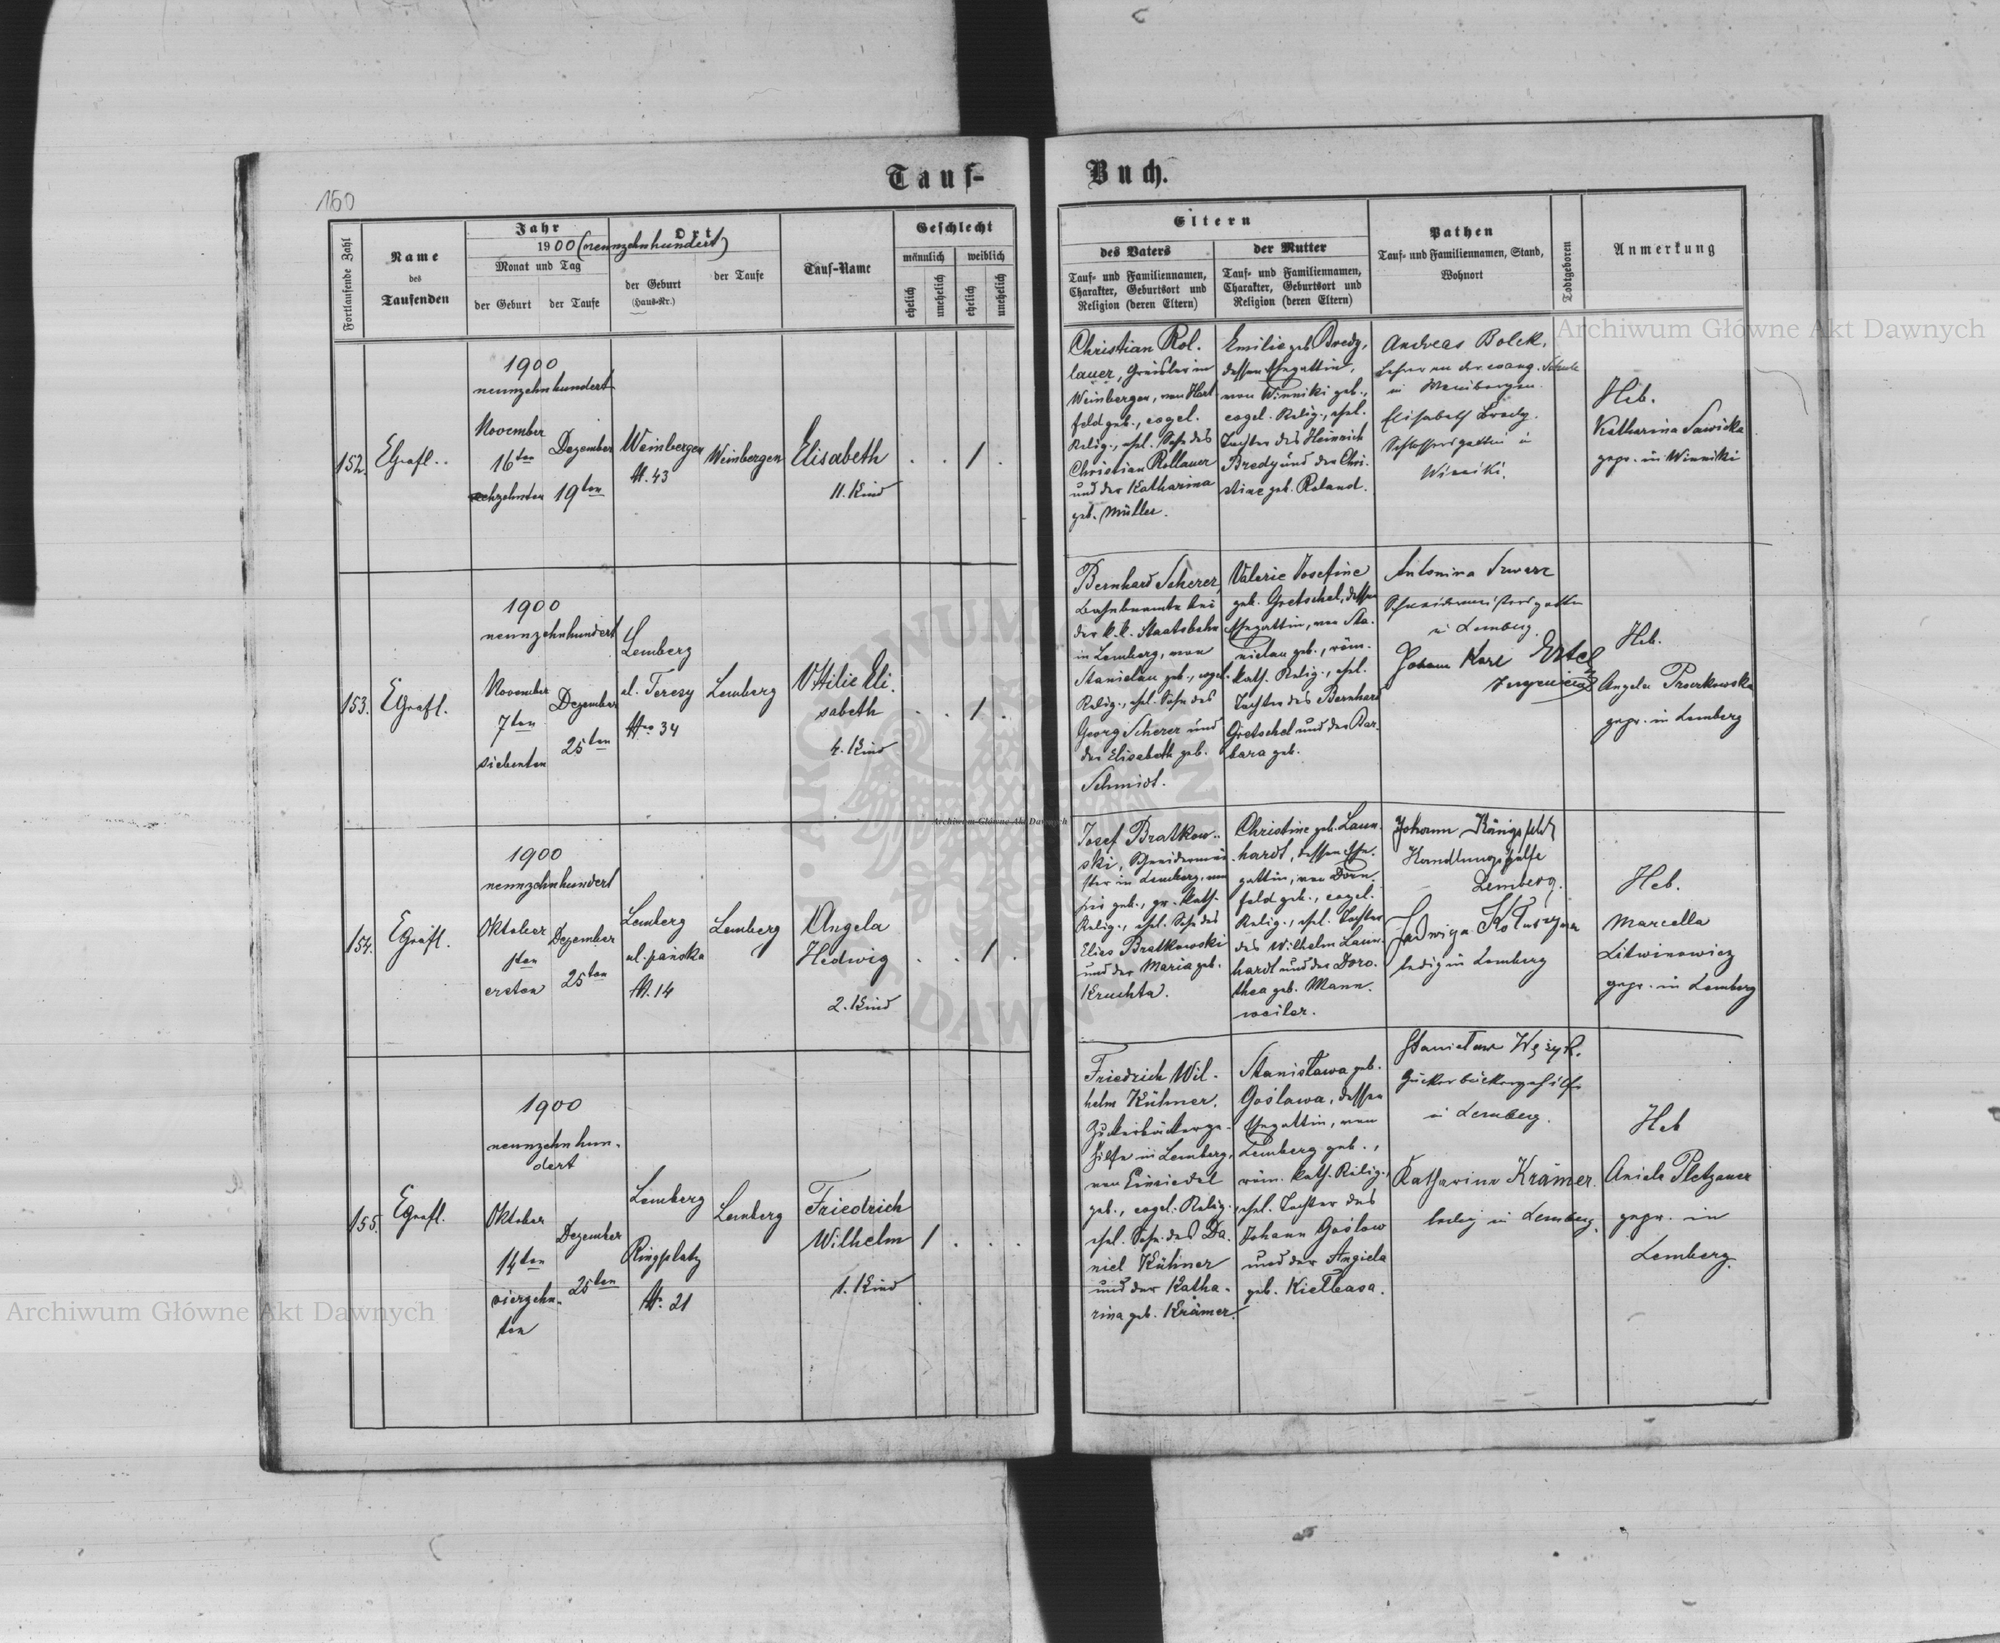 160
Tauf-
Buch.
Fortlaufende Zahl
Name
des
Taufenden
Jahr
1900 (neunzehnhundert)
Monat und Tag
der Geburt
der Taufe
Ort
der Geburt
(Haus-Nr.)
der Taufe
Tauf-Name
Geschlecht
männlich
weiblich
ehelich
unehelich
ehelich
unehelich
Eltern
des Vaters
Tauf- und Familiennamen,
Charakter, Geburtsort und
Religion (deren Eltern)
der Mutter
Tauf- und Familiennamen,
Charakter, Geburtsort und
Religion (deren Eltern)
Pathen
Tauf- und Familiennamen, Stand,
Wohnort
Todtgeboren
Anmerkung
152.
1900
neunzehnhundert
November
16ten
sechzehnten
Dezember
19ten
Weinbergen
N. 43
Weinbergen
Elisabeth
11. Kind
. . 1 .
Christian Rol-
lauer, Greisler in
Weinbergen, von Hart
feld geb., evgel.
Relig., ehel. Sohn des
Christian Rollauer
und der Katharina
geb. Müller.
Emilie geb. Bredy,
dessen Ehegattin,
von Winniki geb.,
evgel. Relig., ehel.
Tochter des Heinrich
Bredy und der Chri-
stine geb. Roland.
Andreas Bolek,
Lehrer an der evang. Schule
in Weinbergen.
Elisabeth Bredy.
Schlossersgattin in
Winniki.
Heb.
Katharina Sawicka
gepr. in Winniki
153.
1900
neunzehnhundert
November
7ten
siebenten
Dezember
25ten
Lemberg
ul. Teresy
Nro 34
Lemberg
Ottilie Eli-
sabeth
4. Kind
. . 1 .
Bernhard Scherer,
Bahnbeamte bei
der k.k. Staatsbahn
in Lemberg, von
Stanislau geb., evgel.
Relig., ehel. Sohn des
Georg Scherer und
der Elisabeth geb.
Schmidt.
Valerie Josefine
geb. Gretschel, dessen
Ehegattin, von Sta-
nislau geb., röm.
kath. Relig., ehel.
Tochter des Bernhard
Gretschel und der Bar-
bara geb.
Antonina
Schneidermeistersgattin
in Lemberg.
Johann Karl Ertel
Heb.
Angela
gepr. in Lemberg
154.
1900
neunzehnhundert
Oktober
1ten
ersten
Dezember
25ten
Lemberg
ul. pańska
N. 14
Lemberg
Angela
Hedwig
2. Kind
. . 1 .
Josef Bratkow-
ski, Schneidermei-
ster in Lemberg, von
geb., gr. kath.
Relig., ehel. Sohn des
Elias Bratkowski
und der Maria geb.
Kruchta.
Christine geb. Laun-
hardt, dessen Ehe-
gattin, von Dorn-
feld geb., evgel.
Relig., ehel. Tochter
des Wilhelm Laun-
hardt und der Doro-
thea geb. Mann-
weiler.
Johann Königsfeld
Handlungsgehilfe
Lemberg.
Jadwiga
ledig in Lemberg
Heb.
Marcella
Litwinowicz
gepr. in Lemberg
155.
1900
neunzehnhun-
dert
Oktober
14ten
vierzehn-
ten
Dezember
25ten
Lemberg
Ringplatz
N. 21
Lemberg
Friedrich
Wilhelm
1. Kind
1 . . .
Friedrich Wil-
helm Kühner,
Zuckerbäckerge-
hilfe in Lemberg,
von Einsiedel
geb., evgel. Relig.,
ehel. Sohn des Da-
niel Kühner
und der Katha-
rina geb. Krämer.
Stanisława geb.
Gosława, dessen
Ehegattin, von
Lemberg geb.,
röm. kath. Relig.,
ehel. Tochter des
Johann Gosław
und der Angiela
geb. Kiełbasa.
Stanisław Wężyk.
Zuckerbäckergehilfe
in Lemberg.
Katharina Krämer.
ledig in Lemberg.
Heb
Aniela Pletzauer
gepr. in
Lemberg.
Archiwum Główne Akt Dawnych
Archiwum Główne Akt Dawnych
Archiwum Główne Akt Dawnych